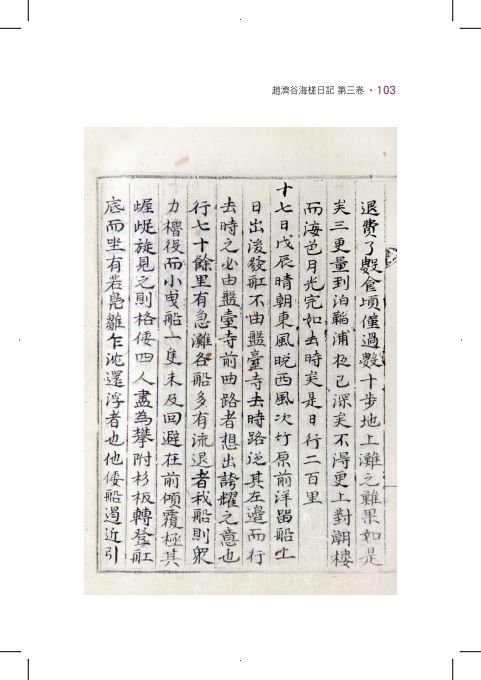 趙濟谷海槎日記 第三卷 · 103
退費了數食頃僅過數十步地上灘之難果如是
矣三更量到泊韜浦夜已深矣不得更上對潮樓
而海色月光完如去時矣是日行二百里
十七日戊辰晴朝東風晩西風次竹原前洋留船上
日出後發舡不由盤臺寺去時路從其左邊而行
去時之必由盤臺寺前曲路者想出誇耀之意也
行七十餘里有急灘各船多有流退者我船則衆
力櫓役而小曳船一隻未及回避在前傾覆極其
崐旋見之則格倭四人盡為攀附杉板轉登舡
底而坐有若鳧雛乍沈還浮者也他倭船過近引